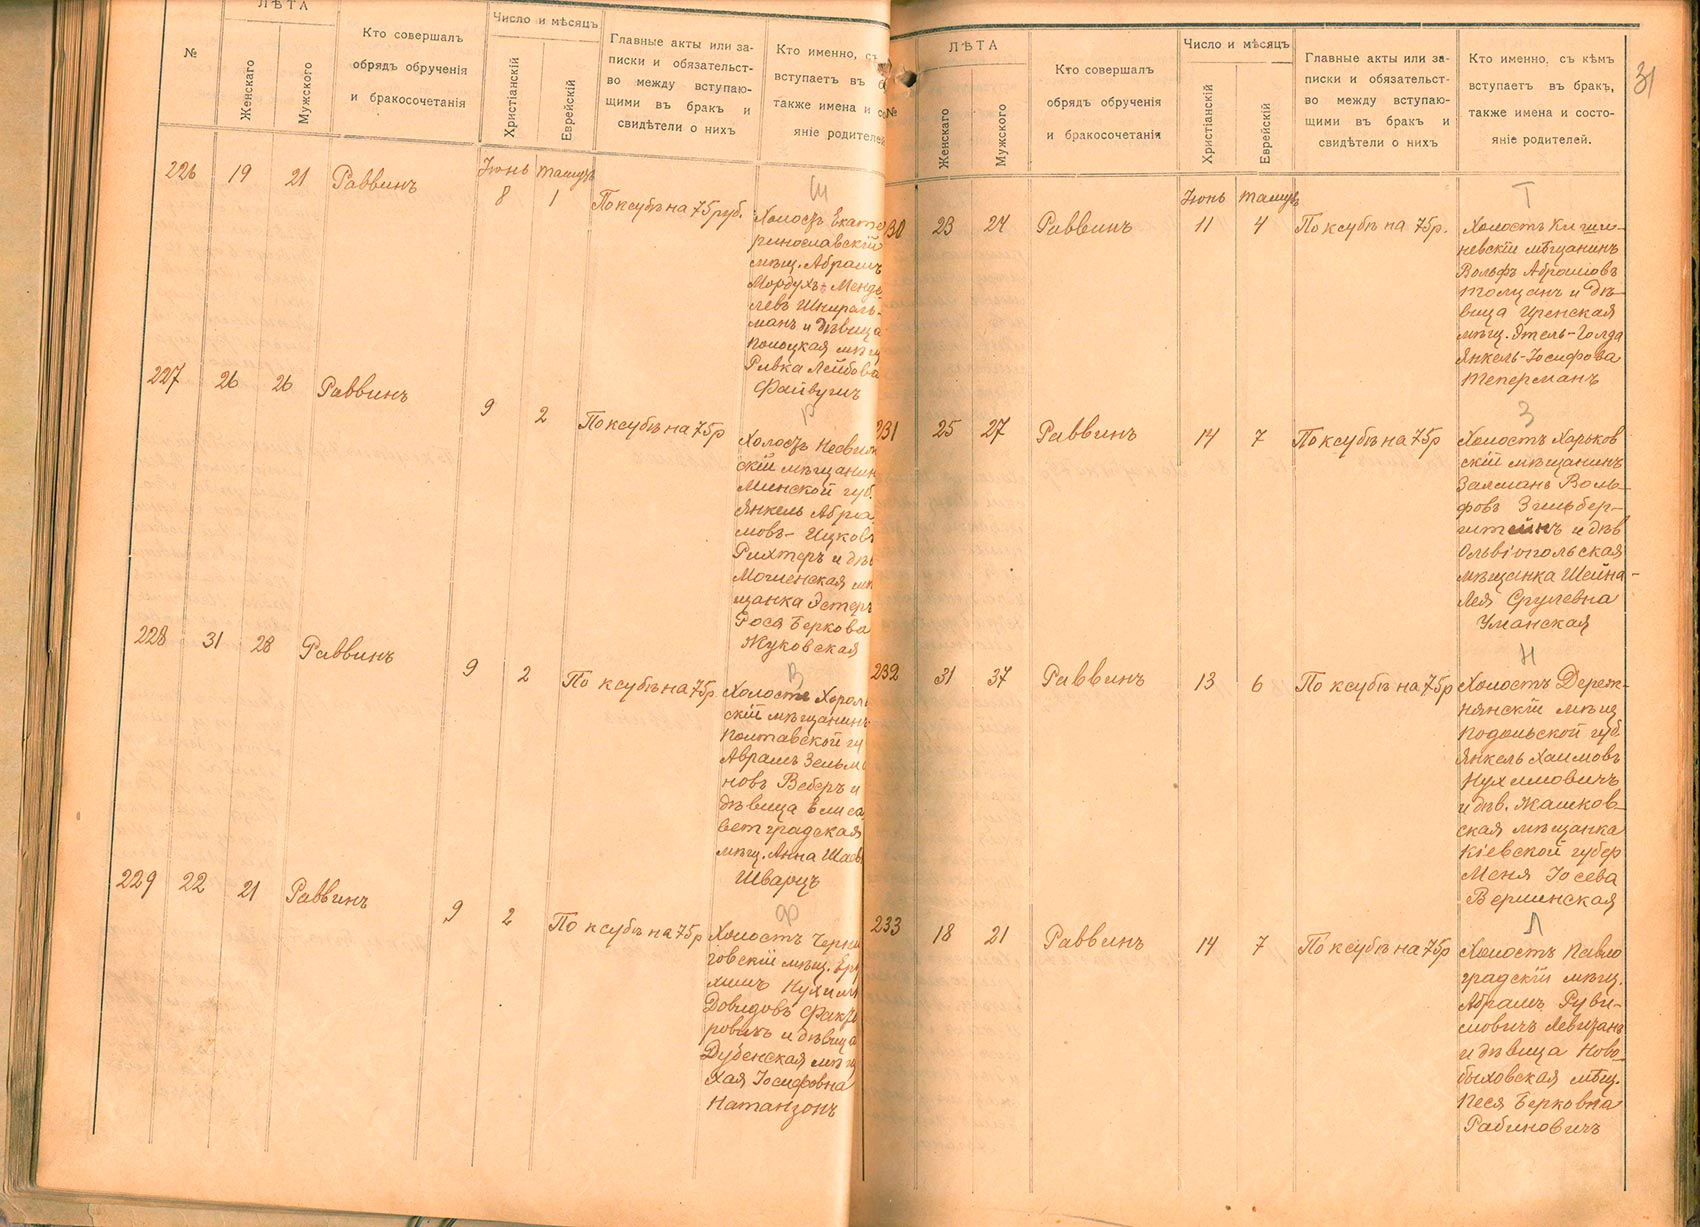 №
ЛѢТА
Женскаго
Мужского
Кто совершалъ
обрядъ обрученія
и бракосочетанія
Число и мѣсяцъ
Христіанскій
Еврейскій
Главные акты или за-
писки и обязательст-
во между вступаю-
щими въ бракъ и
свидѣтели о нихъ
Кто именно, съ
вступаетъ въ б
также имена и со
яніе родителей
226 19 21 Раввинъ
Іюнь Тамузъ
8 1 По ксубѣ на 75 руб.
Ш
Холостъ Екате
ринославскій
мѣщ. Абрамъ
Мордухъ-Менде
левъ Шпираль-
манъ и дѣвица
Полоцкая мѣщ
Ривка Лейбова
Файвушъ
227 26 26 Раввинъ
9 2 По ксубѣ на 75р
Р
Холостъ Несвиж
скій мѣщанин
Минской губ.
Янкель Абра
мовъ-Ицков
Рихтеръ и дѣв
Могленская мѣ
щанка Эстеръ
Рося Беркова
Жуковская
228 31 28 Раввинъ
9 2 По ксубѣ на 75р
В
Холостъ Хороль
скій мѣщанинъ
Полтавской гу
Аврамъ Зельма
новъ Веберъ и
дѣвица Елиса
ветградская
мѣщ. Анна Шаев
Шварцъ
229 22 21 Раввинъ
9 2 По ксубѣ на 75р
Ф
Холостъ Черни
говскій мѣщ. Еру
химъ Нухимъ
Довидовъ Факто
ровичъ и дѣвица
Дубенская мѣщ
Хая Іосифовна
Натанзонъ
31
№
ЛѢТА
Женскаго
Мужского
Кто совершалъ
обрядъ обрученія
и бракосочетанія
Число и мѣсяцъ
Христіанскій
Еврейскій
Главные акты или за-
писки и обязательст-
во между вступаю-
щими въ бракъ и
свидѣтели о нихъ
Кто именно, съ кѣмъ
вступаетъ въ бракъ,
также имена и состо-
яніе родителей.
Іюнь Тамузъ
230 23 24 Раввинъ 11 4 По ксубѣ на 75р.
Т
Холостъ Кишы-
невскій мѣщанинъ
Вольфъ Абрамовъ
Толцанъ и дѣ-
вица Иренская
мѣщ. Этель-Голда
Янкель-Іосифова
Теперманъ
231 25 27 Раввинъ 14 7 По ксубѣ на 75р
З
Холостъ Харьков
скій мѣщанинъ
Залманъ Воль-
фовъ Зильбер-
штейнъ и дѣв
Ольвіопольская
мѣщанка Шейна-
Лея Срулевна
Уманская
232 31 37 Раввинъ 13 6 По ксубѣ на 75р
Н
Холостъ Дереж-
нянскій мѣщ
Подольской губ
Янкель Хаимовъ
Нухимовичъ
и дѣв. Жашков-
ская мѣщанка
Кіевской губер
Меня Іосева
Вершинская
233 18 21 Раввинъ 14 7 По ксубѣ на 75р
Л
Холостъ Павло
градскій мѣщ.
Абрамъ Руви-
мовичъ Левитанъ
и дѣвица Ново-
быховская мѣщ.
Песя Берковна
Рабиновичъ